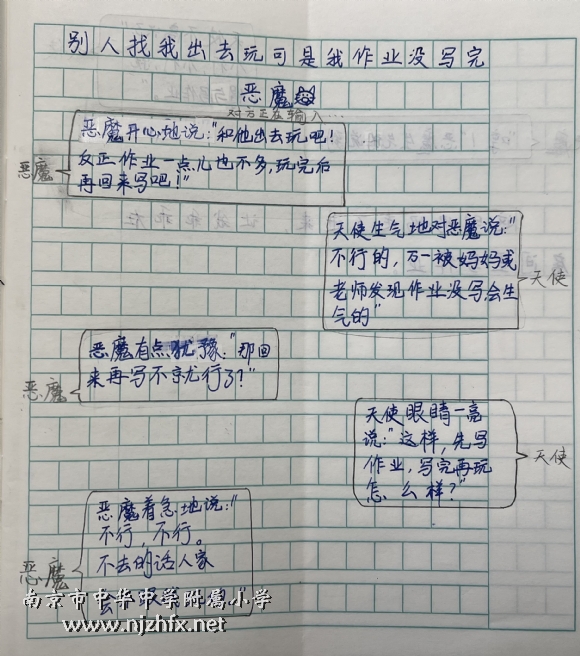 别人找我出去玩可是我作业没写完
恶魔
对方正在输入…
恶魔开心地说:“和他出去玩吧!
反正作业一点儿也不多,玩完后
再回来写吧!”
恶魔
天使生气地对恶魔说:“
不行的,万一被妈妈或
老师发现作业没写,会生
气的”
天使
恶魔有点犹豫:“那回
来再写不就行了?”
恶魔
天使眼睛一亮
说:“这样,先写
作业,写完再玩
怎么样?”
天使
恶魔着急地说:“
不行,不行。
不去的话人家
会
恶魔
南京市中华中学附属小学
www.njzhfx.net